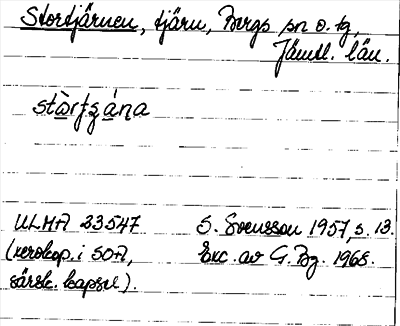 Stortjärnen, tjärn, Bergs sn o. tg,
Jämtl. län.
ULMA 23547
(xerokop. i SOA,
särsk. kapsel).
S. Svensson 1957, s. 13.
Exc. av G. Bg. 1968.